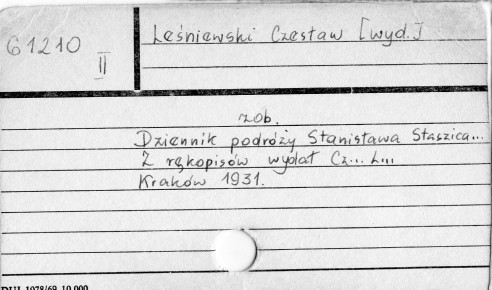 61210
II
Leśniewski Czesław [wyd.]
zob.
Dziennik podróży Stanisława Staszica...
Z rękopisów wydał Cz... L...
Kraków 1931.
DUJ 1078/69 10.000